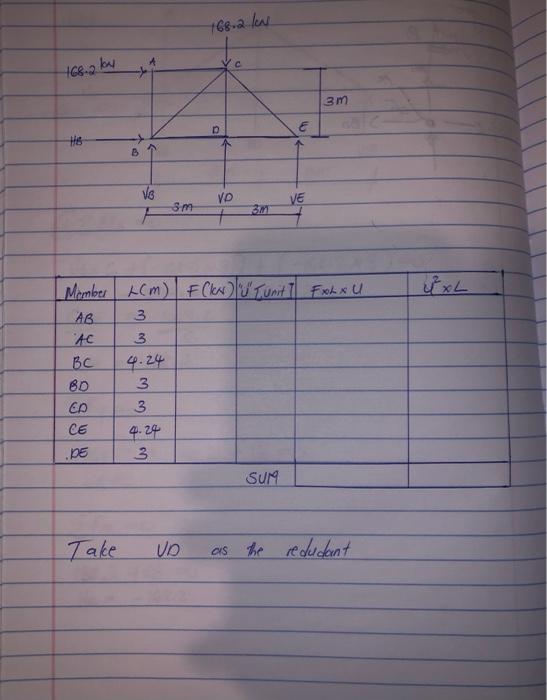 168.2 kN
168.2 kN A C
3m
HB B D E
VB VD VE
3m 3m
Member L(m) F(kN) "U" [unit] FxLxU U²xL
AB 3
AC 3
BC 4.24
BD 3
CD 3
CE 4.24
DE 3
SUM
Take VD as the redudant